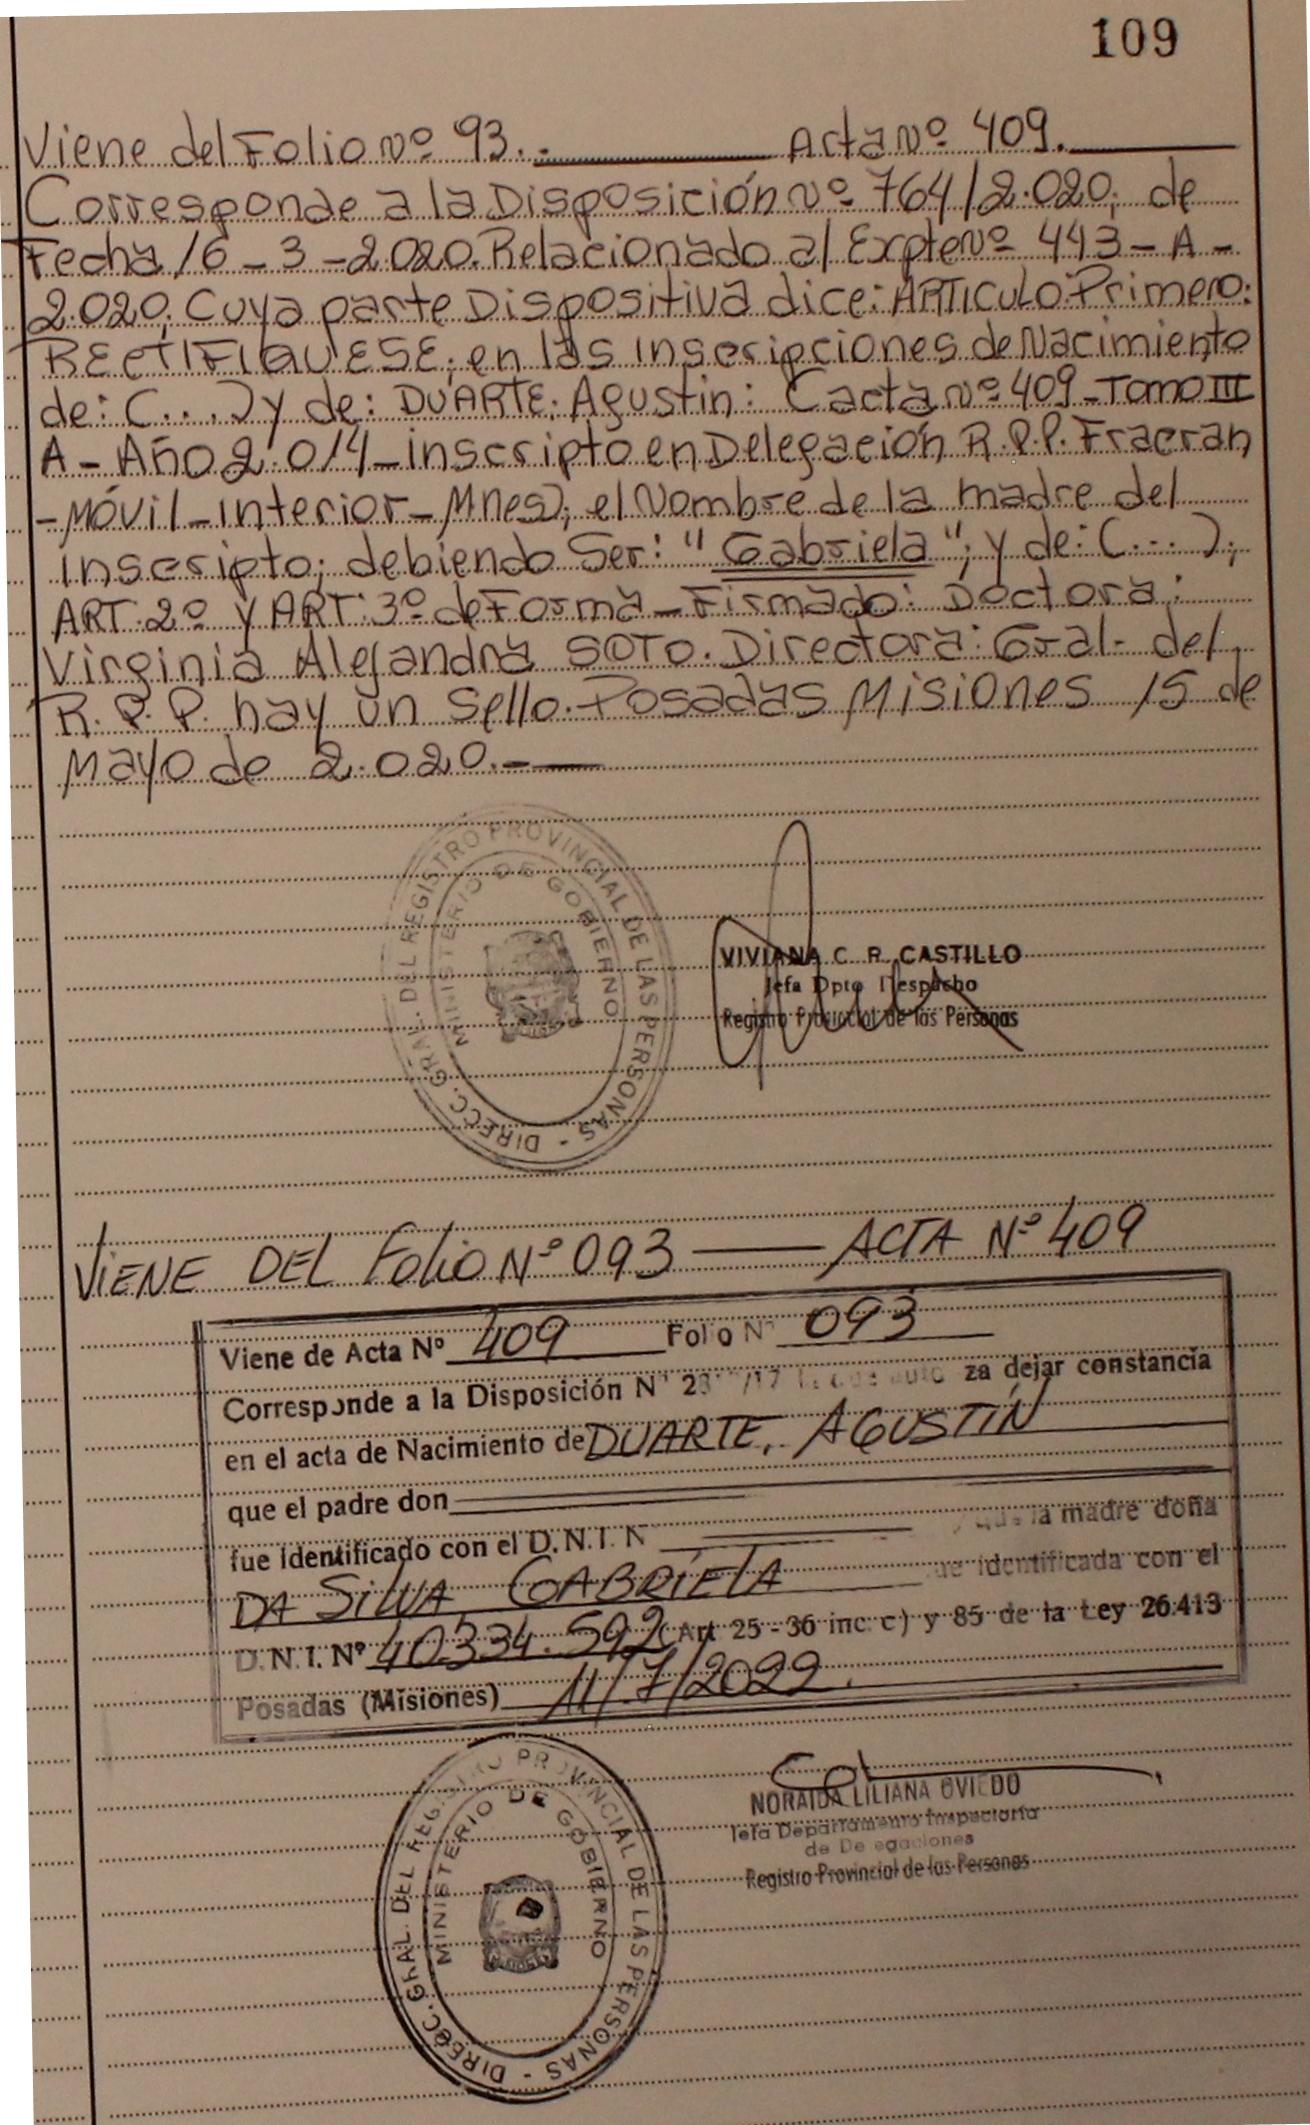 109
Viene del Folio Nº 93. Acta Nº 409.
Corresponde a la Disposición Nº 764/2.020; de
Fecha 16-3-2.020. Relacionado al Expte Nº 443-A-
2.020; Cuya parte Dispositiva dice: ARTICULO: Primero:
RECTIFIQUESE; en las inscripciones de Nacimiento
de: (...) y de: DUARTE; Agustin: (acta Nº 409-Tomo III
A-Año 2.014-inscripto en Delegación R.P.P. Fracran
-Móvil-interior-Mnes); el Nombre de la madre del
inscripto; debiendo Ser: "Gabriela"; y de: (...);
ART. 2º y ART: 3º de Forma-Firmado: Doctora:
Virginia Alejandra SOTO. Directora: Gral- del
R.P.P. hay un Sello. Posadas Misiones 15 de
Mayo de 2.020.-
DIRECC. GRAL. DEL REGISTRO PROVINCIAL DE LAS PERSONAS -
MINISTERIO DE GOBIERNO
VIVIANA C. R. CASTILLO
Jefa Dpto Despacho
Registro Provincial de las Personas
VIENE DEL Folio Nº 093 ACTA Nº 409
Viene de Acta Nº 409 Folio Nº 093
Corresponde a la Disposición Nº /17 za dejar constancia
en el acta de Nacimiento de DUARTE, AGUSTÍN
que el padre don
fue identificado con el D.N.I. N y que la madre doña
DA SILVA GABRIELA fue identificada con el
D.N.I. Nº 40.334.592 (Art 25-36 inc. c) y 85 de la Ley 26.413
Posadas (Misiones) 11/7/2022.
DIRECC. GRAL. DEL REGISTRO PROVINCIAL DE LAS PERSONAS -
MINISTERIO DE GOBIERNO
NORAIDA LILIANA OVIEDO
Jefa Departamento Inspectoría
de Delegaciones
Registro Provincial de las Personas